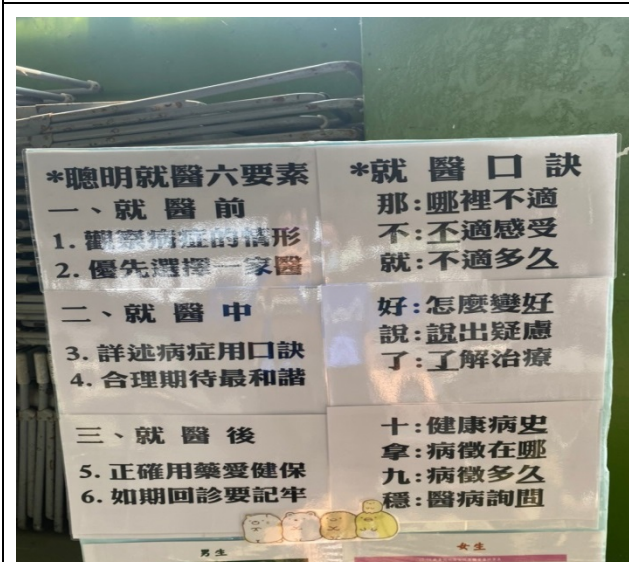 *聰明就醫六要素
一、就醫前
1. 觀察病症的情形
2. 優先選擇一家醫
二、就醫中
3. 詳述病症用口訣
4. 合理期待最和諧
三、就醫後
5. 正確用藥愛健保
6. 如期回診要記牢
*就醫口訣
那:哪裡不適
不:不適感受
就:不適多久
好:怎麼變好
說:說出疑慮
了:了解治療
十:健康病史
拿:病徵在哪
九:病徵多久
穩:醫病詢問
男生
女生